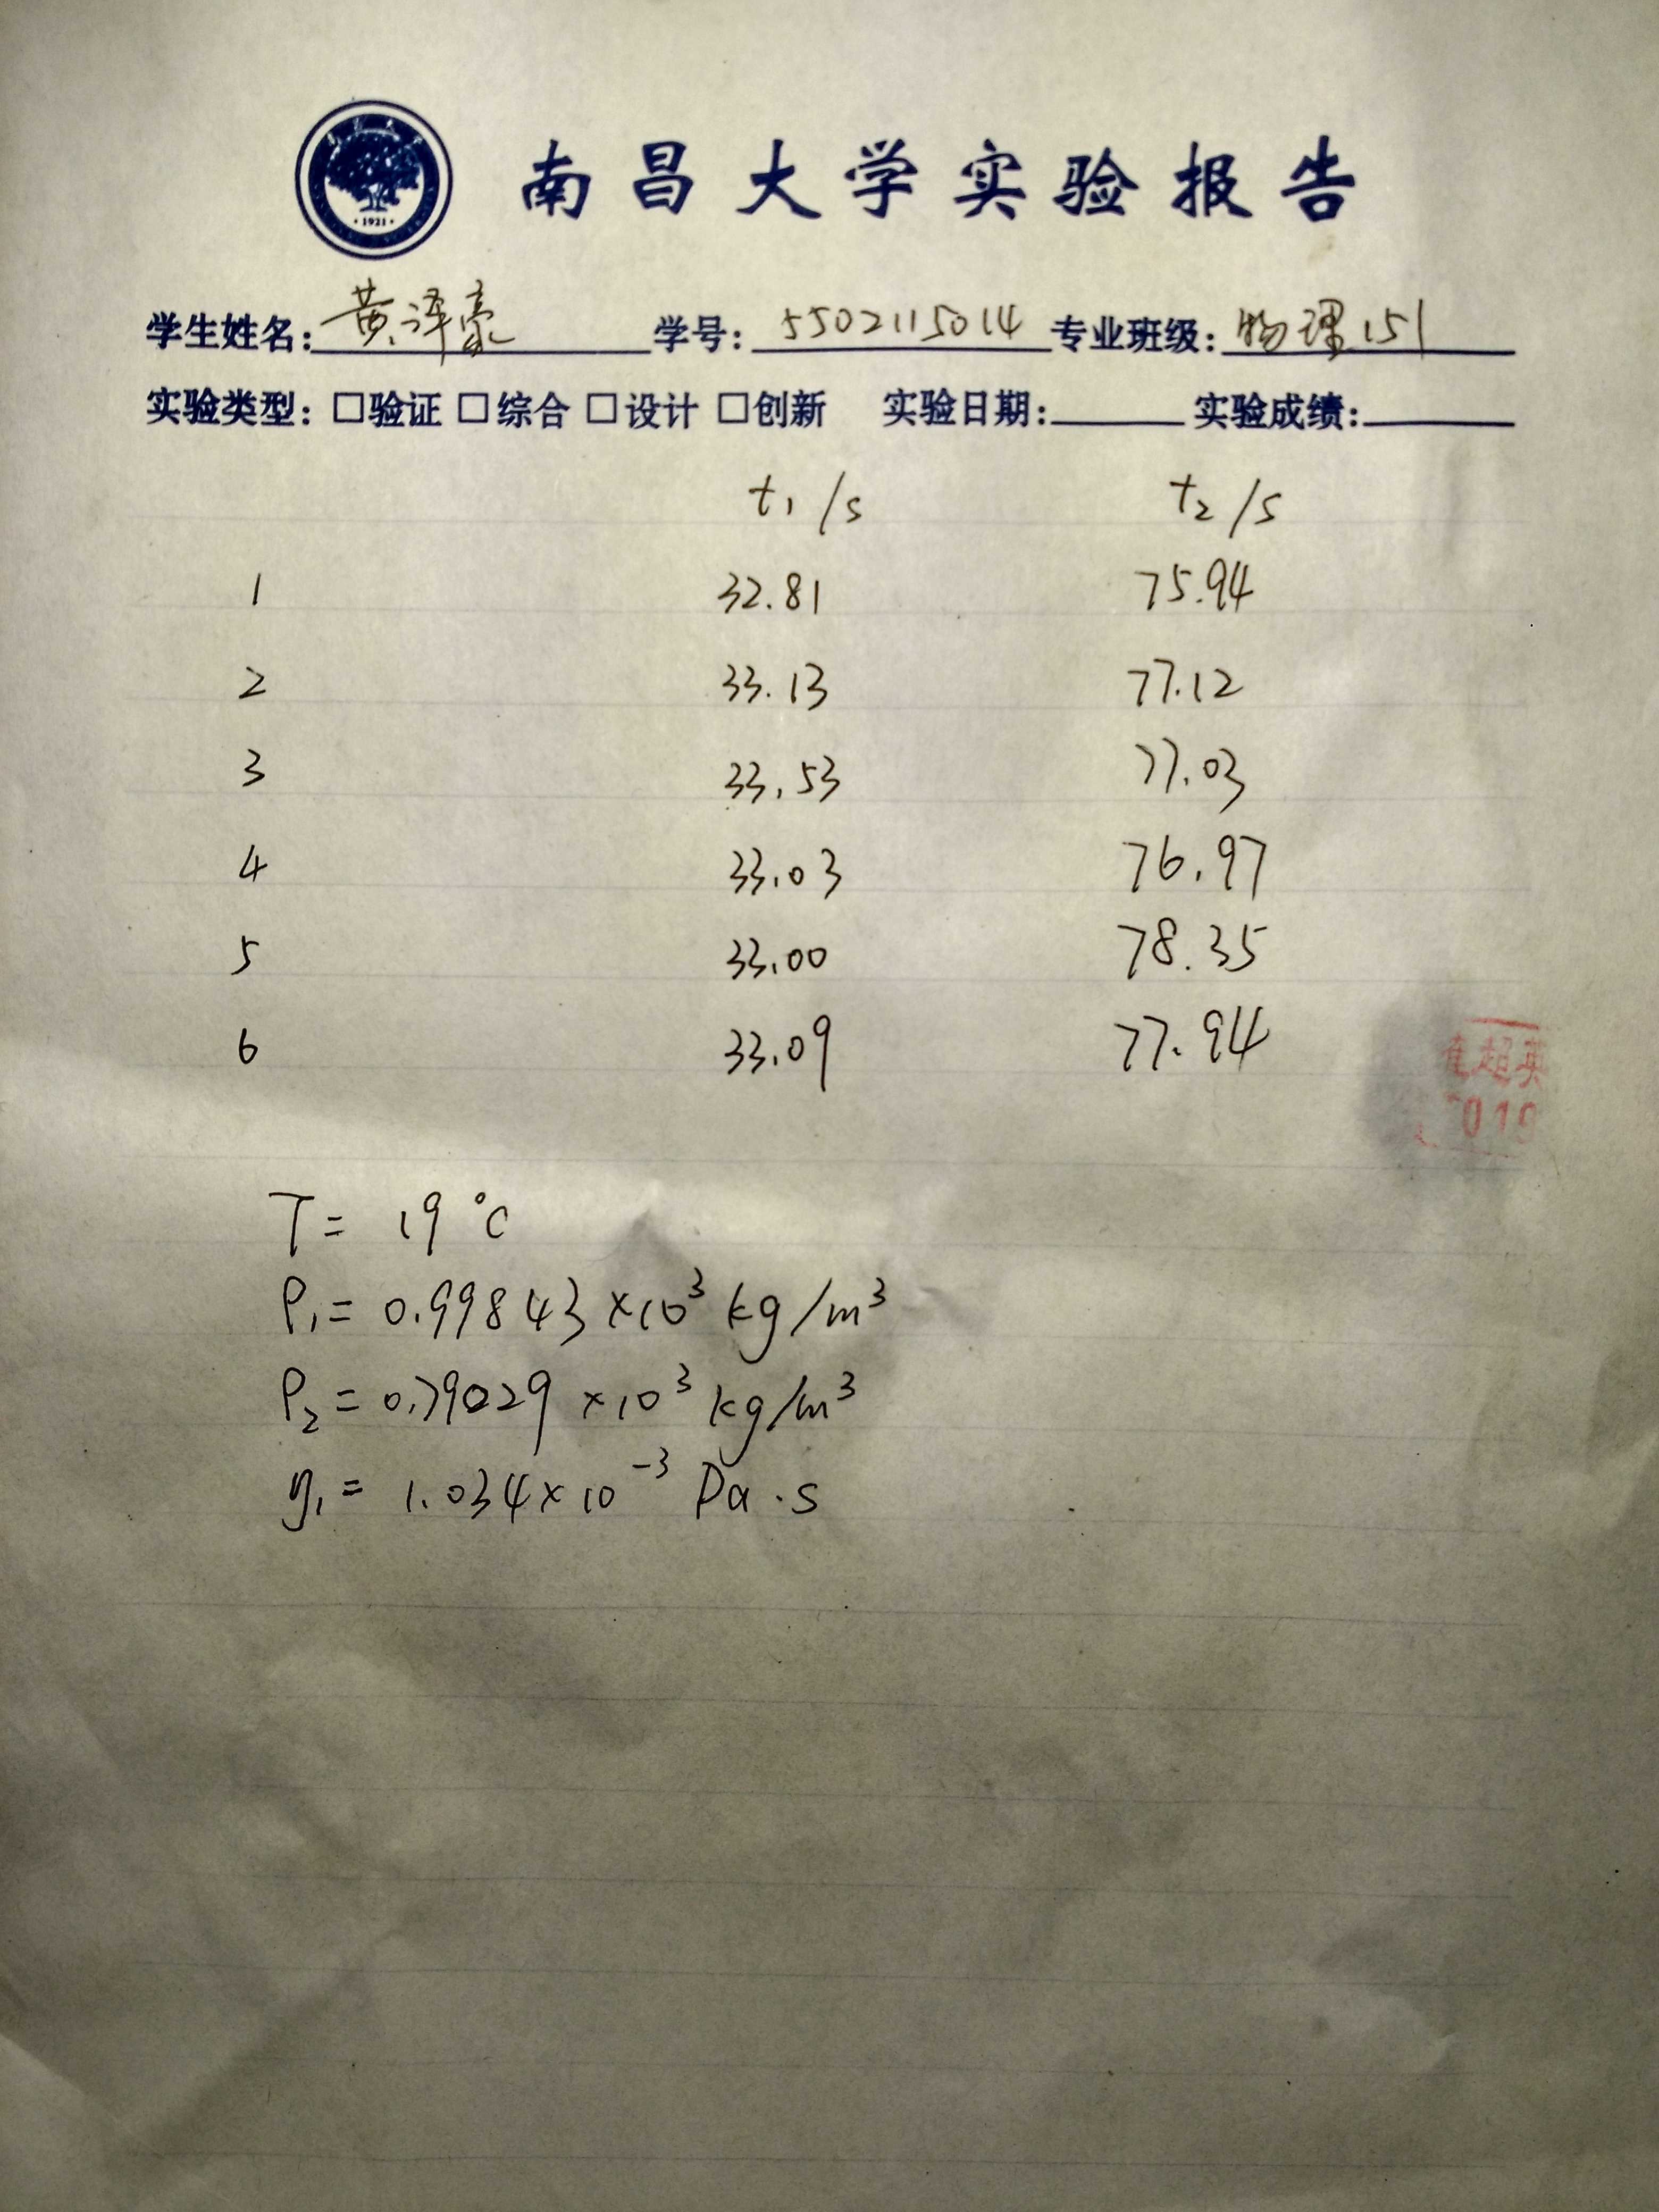 ·1921·
南昌大学实验报告
学生姓名: 黄泽豪 学号: 5502115014 专业班级: 物理151
实验类型: □验证 □综合 □设计 □创新 实验日期: 实验成绩:
t₁/s t₂/s
1 32.81 75.94
2 33.13 77.12
3 33.53 77.03
4 33.03 76.97
5 33.00 78.35
6 33.09 77.94
超英
019
T = 19 °C
ρ₁ = 0.99843 ×10³ kg/m³
ρ₂ = 0.79029 ×10³ kg/m³
η₁ = 1.034×10⁻³ Pa·s